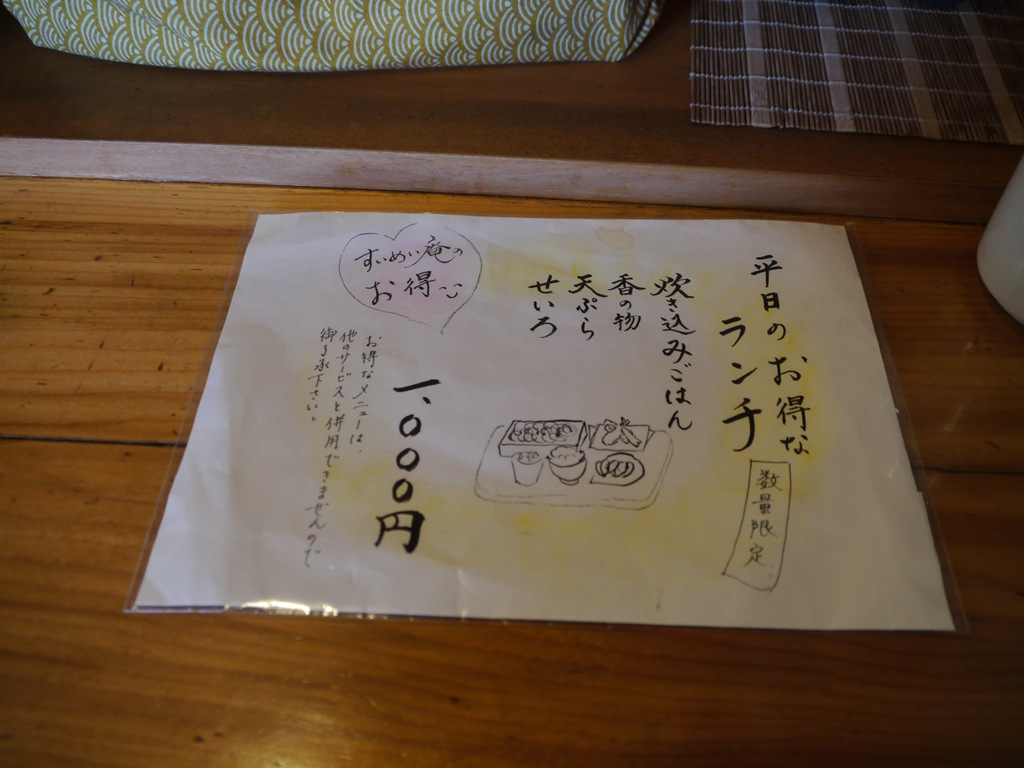 平日のお得な
ランチ
数量限定
炊き込みごはん
香の物
天ぷら
せいろ
すいめい庵の
お得
一、〇〇〇円
お得なメニューは、
他のサービスと併用できませんので
御了承下さい。